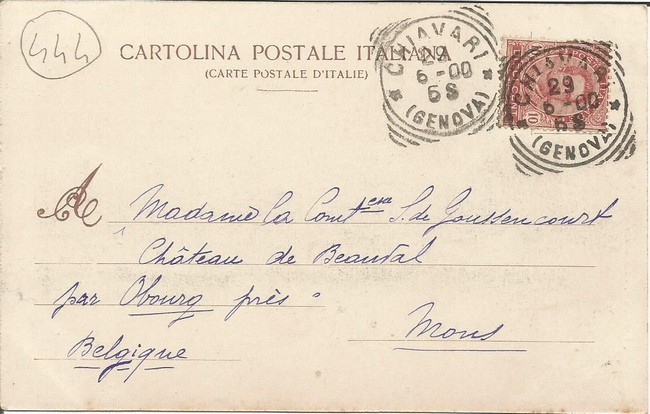 444
CARTOLINA POSTALE ITALIANA
(CARTE POSTALE D'ITALIE)
CHIAVARI
29
6-00
5S
(GENOVA)
CHIAVARI
29
6-00
5S
(GENOVA)
A Madame la Comt.esse S. de Goussencourt
Château de Beauval
par Obourg près
Mons
Belgique